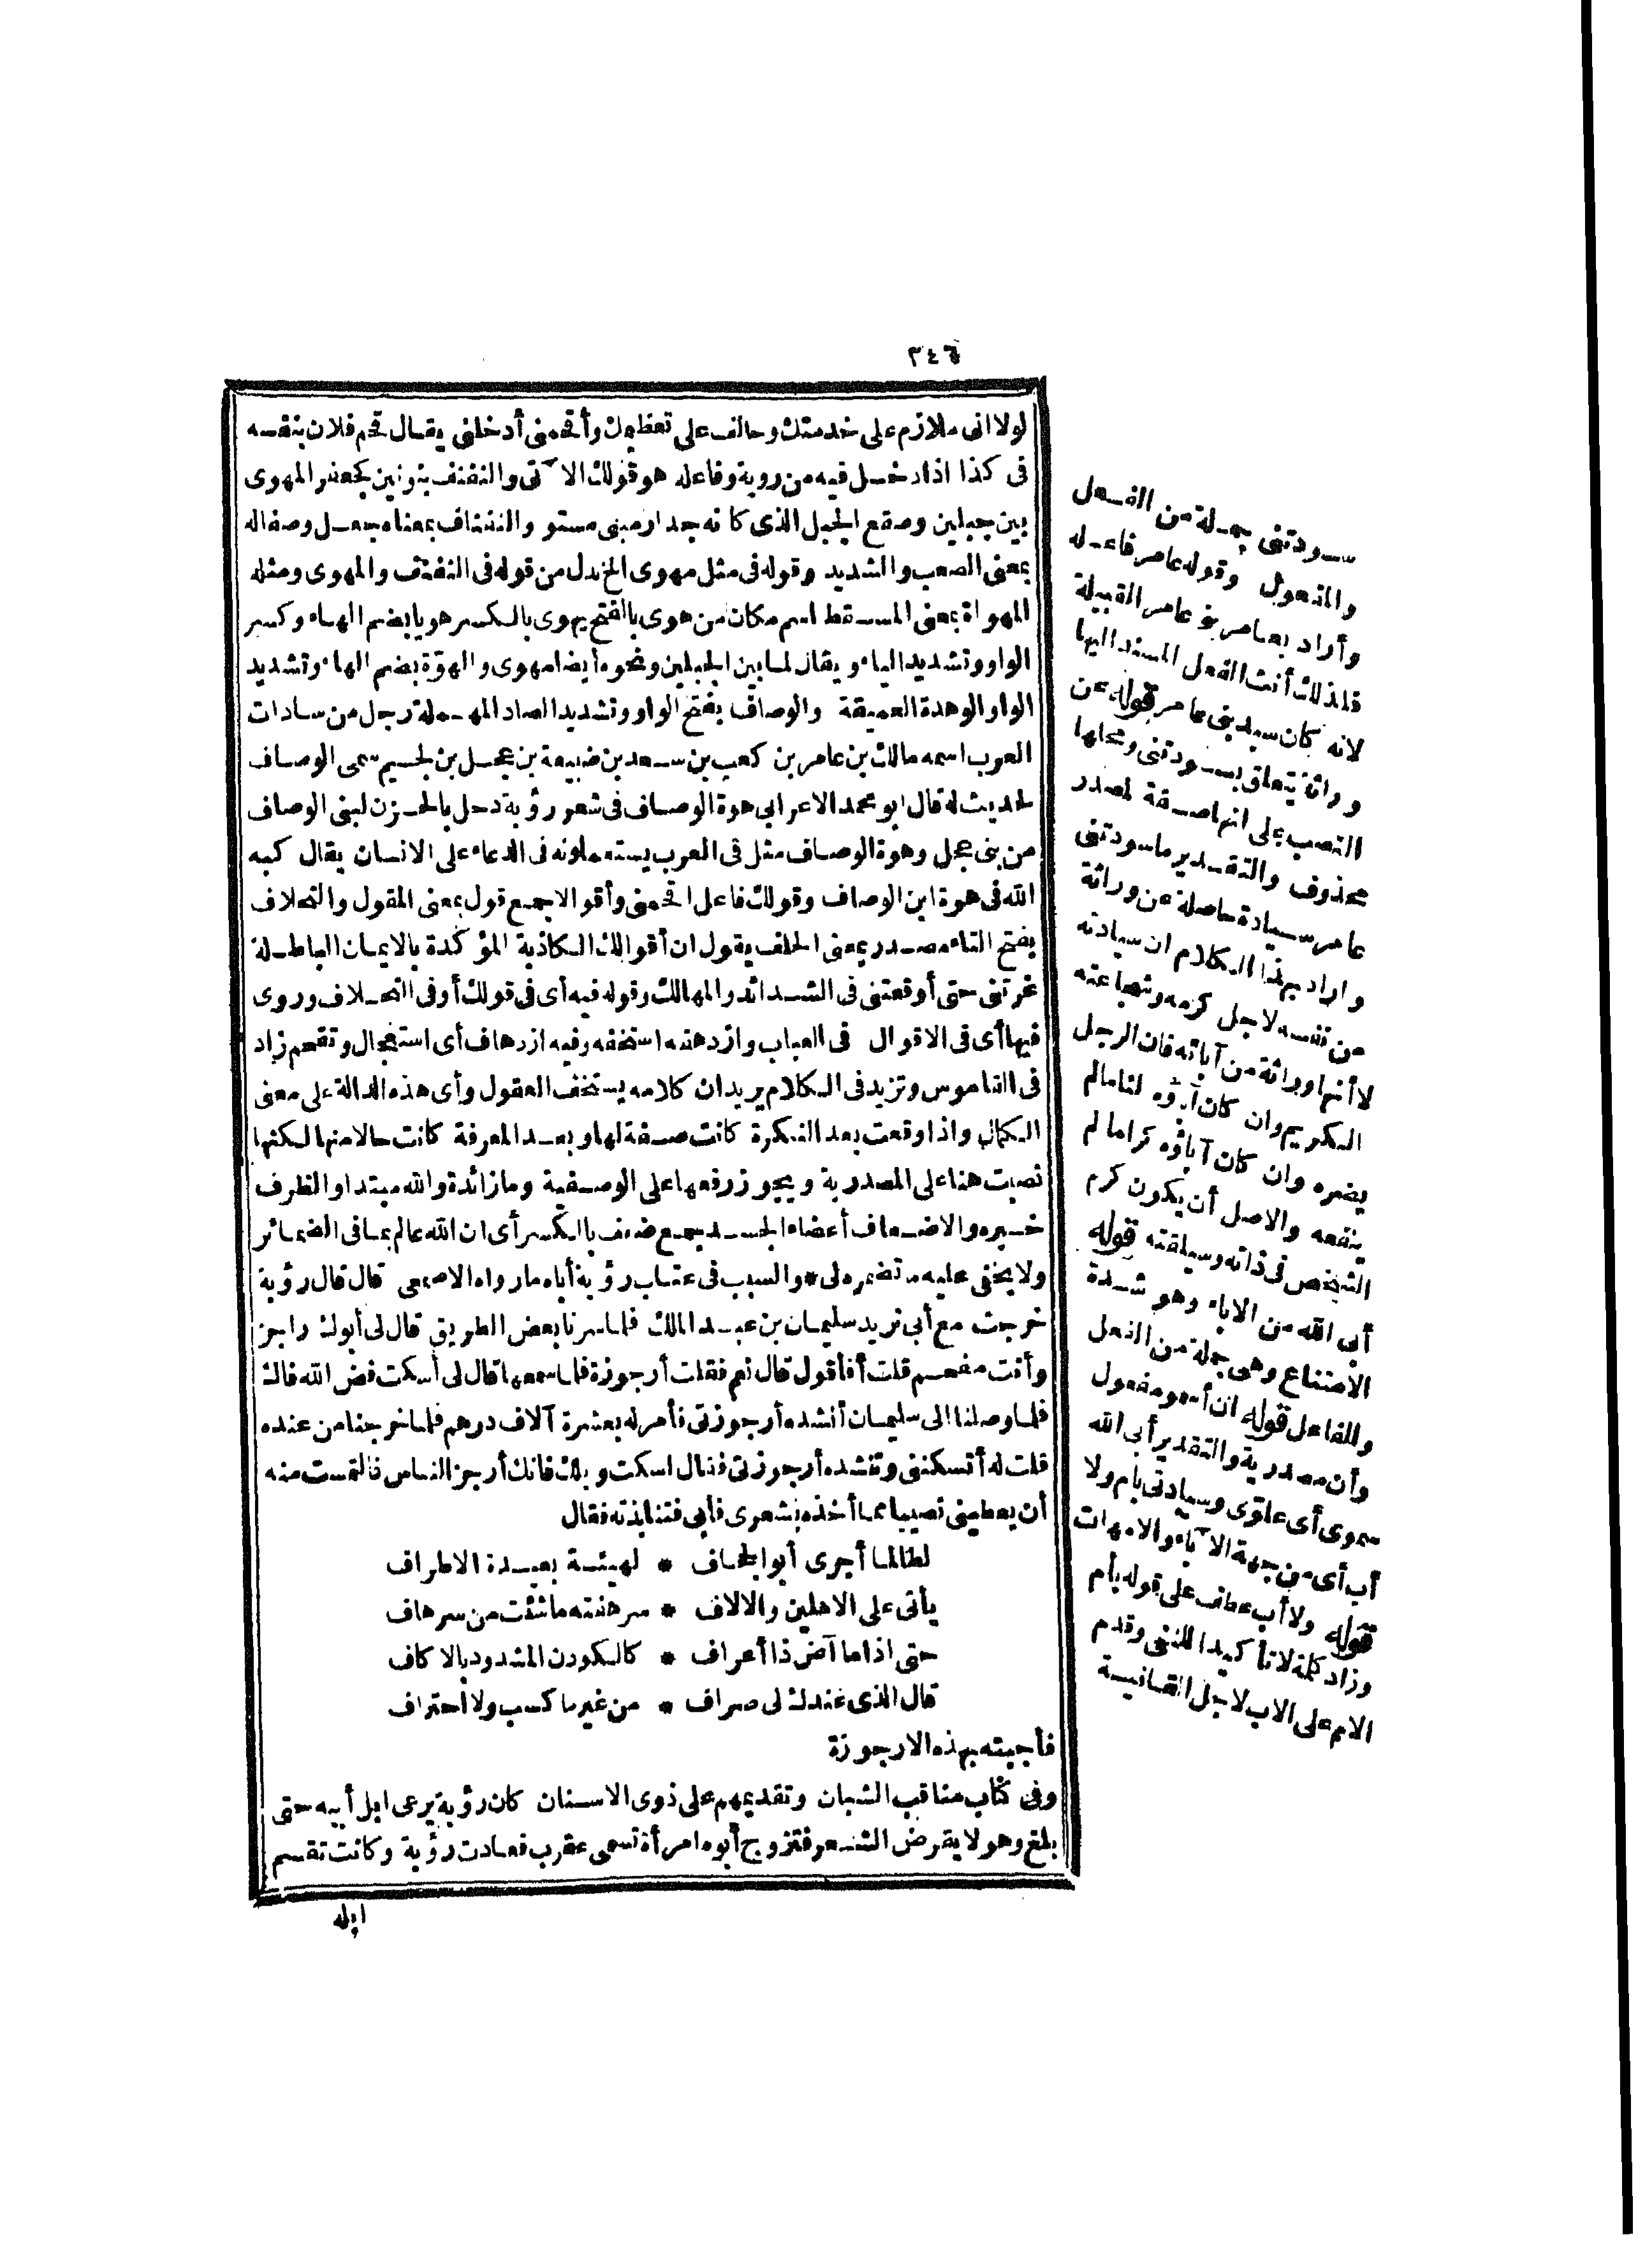 ٣٤٦
لولا انى ملازم على خدمتك وحالف على تعظيمك وأقحمنى أدخلنى يقال قحم فلان بنفسه
فى كذا اذا دخل فيه من روية وفاعله هو قولك الآتى والنفنف بنونين كجعفر المهوى
بين جبلين وصقع الجبل الذى كانه جدار مبنى مستو والنفناف بمعناه جعل وصفا له
بمعنى الصعب والشديد وقوله فى مثل مهوى الخ بدل من قوله فى النفنف والمهوى ومثله
المهواة بمعنى المسقط اسم مكان من هوى بالفتح يهوى بالكسر هويا بضم الهاء وكسر
الواو وتشديد الياء ويقال لما بين الجبلين ونحوه أيضا مهوى والهوّة بضم الهاء وتشديد
الواو الوهدة العميقة والوصاف بفتح الواو وتشديد الصاد المهملة رجل من سادات
العرب اسمه مالك بن عامر بن كعب بن سعد بن ضبيعة بن عجل بن لجيم سمى الوصاف
لحديث له قال ابو محمد الاعرابى هوة الوصاف فى شعر رؤبة دحل بالحزن لبنى الوصاف
من بنى عجل وهوة الوصاف مثل فى العرب يستعملونه فى الدعاء على الانسان يقال كبه
الله فى هوة ابن الوصاف وقولك فاعل اقحمنى وأقوالا جمع قول بمعنى المقول والتحلاف
بفتح التاء مصدر بمعنى الحلف يقول ان أقوالك الكاذبة المؤكدة بالايمان الباطلة
غرتنى حتى أوقعتنى فى الشدائد والمهالك وقوله فيه أى فى قولك أو فى التحلاف وروى
فيها أى فى الاقوال فى العباب وازدهفه استخفه وفيه ازدهاف أى استعجال وتقحم زاد
فى القاموس وتزيد فى الكلام يريد ان كلامه يستخف العقول وأى هذه الدالة على معنى
الكمال واذا وقعت بعد النكرة كانت صفة لها وبعد المعرفة كانت حالا منها لكنها
نصبت هنا على المصدرية ويجوز رفعها على الوصفية وما زائدة والله مبتدا والظرف
خبره والاضعاف أعضاء الجسد جمع ضعف بالكسر أى ان الله عالم بما فى الضمائر
ولا يخفى عليه ما تضمره لى * والسبب فى عتاب رؤبة أباه ما رواه الاصمعى قال قال رؤبة
خرجت مع أبى نريد سليمان بن عبد الملك فلما سرنا بعض الطريق قال لى أبوك راجز
وأنت مفحم قلت أفأقول قال نعم فقلت أرجوزة فلما سمعها قال لى أسكت فض الله فاك
فلما وصلنا الى سليمان أنشده أرجوزتى فأمر له بعشرة آلاف درهم فلما خرجنا من عنده
قلت له أتسكتنى وتنشده أرجوزتى فقال اسكت ويلك فانك أرجز الناس فالتمست منه
أن يعطينى نصيبا مما أخذه بشعرى فأبى فنابذته فقال
لطالما أجرى أبو الجحاف * لهيئة بعيدة الاطراف
يأتى على الاهلين والالاف * سرهفته ما شئت من سرهاف
حتى اذا ما آض ذا أعراف * كالكودن المشدود بالاكاف
قال الذى عندك لى صراف * من غير ما كسب ولا احتراف
فأجبته بهذه الارجوزة
وفى كتاب مناقب الشبان وتقديمهم على ذوى الاسنان كان رؤبة يرعى ابل أبيه حتى
بلغ وهو لا يقرض الشعر فتزوج أبوه امرأة تسمى عقرب فعادت رؤبة وكانت تقسم
ابله
سودتنى جملة من الفعل
والمفعول وقوله عامر فاعله
وأراد بعامر بنو عامر القبيلة
فلذلك أنث الفعل المسند اليها
لانه كان سيد بنى عامر قوله عن
وراثة يتعلق بسودتنى ومحلها
النصب على انها صفة لمصدر
محذوف والتقدير ما سودتنى
عامر سيادة حاصلة عن وراثة
واراد بهذا الكلام ان سيادته
من نفسه لاجل كرمه وشجاعته
لا أنها وراثة من آبائه فان الرجل
الكريم وان كان آباؤه لئاما لم
يضره وان كان آباؤه كراما لم
ينفعه والاصل أن يكون كرم
الشخص فى ذاته وسليقته قوله
أبى الله من الاباء وهو شدة
الامتناع وهى جملة من الفعل
والفاعل قوله ان أسمو مفعول
وأن مصدرية والتقدير أبى الله
سموى أى علوّى وسيادتى بأم ولا
أب أى من جهة الآباء والامهات
قوله ولا أب عطف على قوله بأم
وزاد كلمة لا تأكيدا للنفى وقدم
الام على الاب لاجل القافية